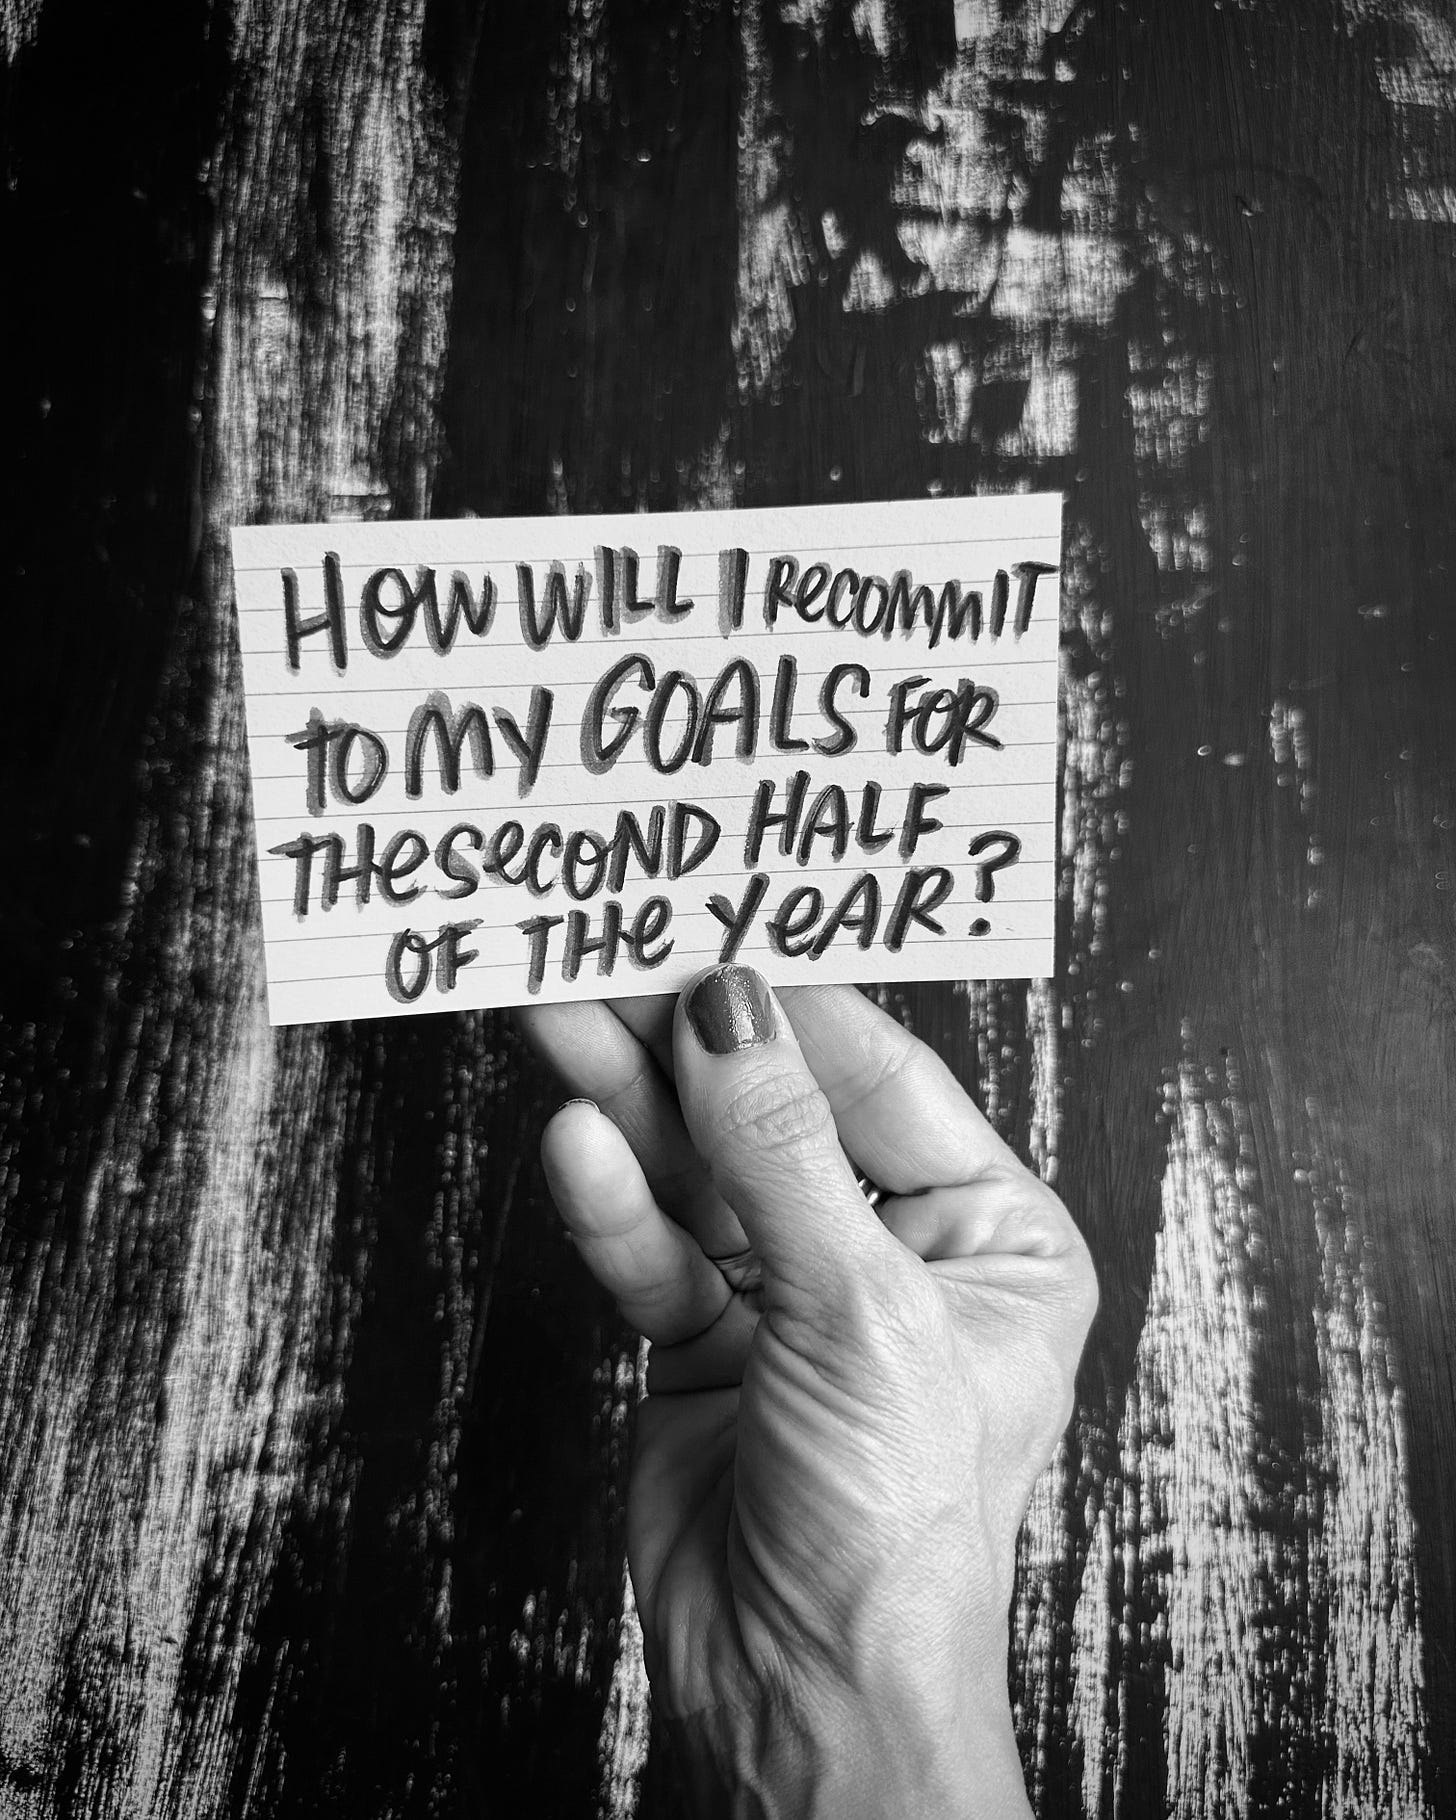 HOW WILL I RecommIT
to MY GOALS FOR
THe SecoND HALF
OF THe YeAR?